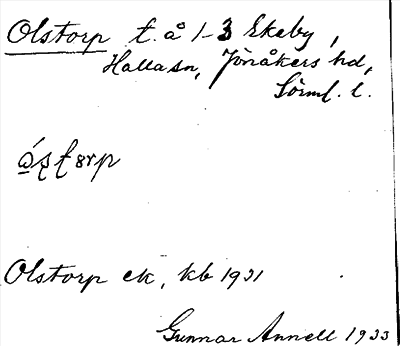 Olstorp t. å 1-3 Skeby,
Halla sn, Jönåkers hd,
Sörml. l.
Olstorp ek, kb 1931
Gunnar Annell 1933